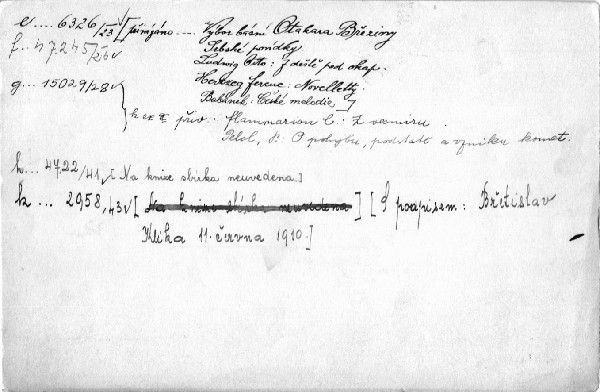 e .... 6326/23 √ [přivázáno .... Výbor básní Otakara Březiny
Selské povídky
Ludwig Otto: Z deště pod okap.
f ... 47245/26 √
Herczeg Ferenc: Novelletty
g ... 15029/28 √
Babánek: České melodie]
k ex II přiv.: Flammarion C.: Z vesmíru.
O pohybu, podstatě a vzniku komet.
h ... 4722/41 √ [Na knize sbírka neuvedena.]
k ... 2958/43 √ [Na knize sbírka neuvedena] [S podpisem: Břetislav
Klika 11. června 1910.]